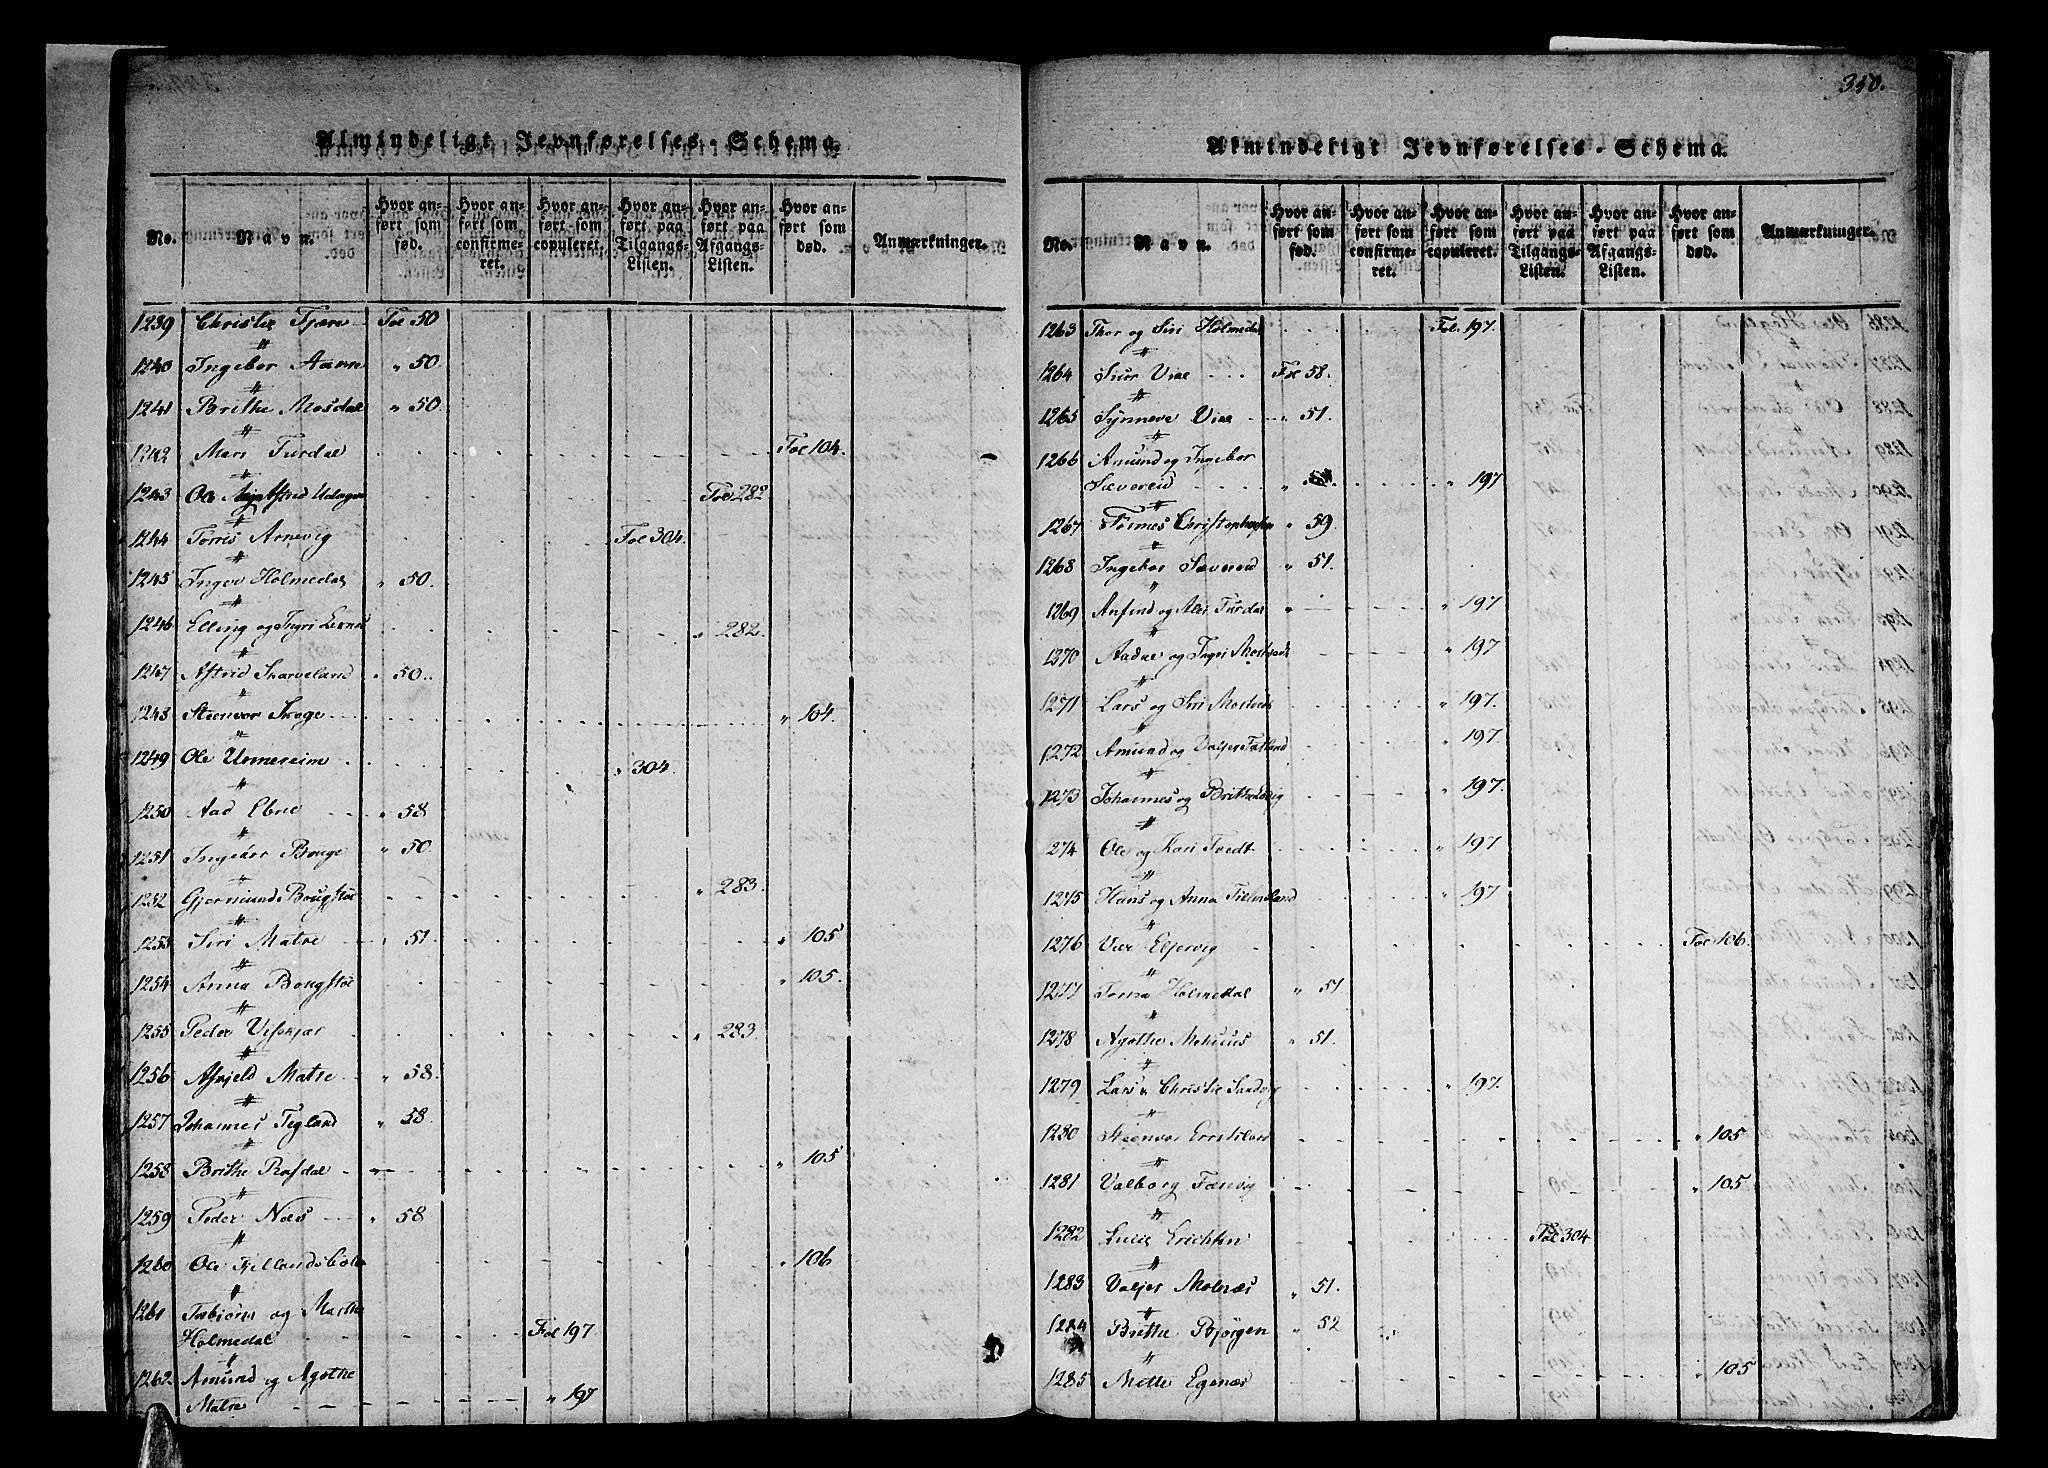 350.
Almindeligt Jevnførelses-Schema.
No.
Navn.
Hvor anført som fød.
Hvor anført som confirmeret.
Hvor anført som copuleret.
Hvor anført paa Tilgangs-Listen.
Hvor anført paa Afgangs-Listen.
Hvor anført som død.
Anmærkninger.
1239 Christie Fjære Fol 50
1240 Ingebor Aamre " 50
1241 Brithe Mosdal " 50
1242 Mari Furdal Fol 104.
1243 Ole Astrid Fol 282
1244 Torris Arnevig Fol 304.
1245 Inger Holmedal " 50.
1246 Elling og Ingri " 282.
1247 Astrid " 50.
1248 Steenvor " 104.
1249 Ole " 304.
1250 Aad Ebne " 58
1251 Ingebor Bouge " 50.
1252 Gjermund Bougstøe " 283.
1253 Siri Matre " 51. " 105
1254 Anna Bougstøe " 105.
1255 Peder " 283.
1256 Matre " 58.
1257 Johannes Tegland " 58
1258 Brithe Rafdal " 105
1259 Peder Næs " 58
1260 Ole " 106
1261 Torbiörn og Marthe
Holmedal Fol 197.
1262. Amund og Agathe
Matre " 197
Almindeligt Jevnførelses-Schema.
No.
Navn.
Hvor anført som fød.
Hvor anført som confirmeret.
Hvor anført som copuleret.
Hvor anført paa Tilgangs-Listen.
Hvor anført paa Afgangs-Listen.
Hvor anført som død.
Anmærkninger.
1263 Thor og Siri Holmedal Fol. 197.
1264 Siur Viae Fol 58.
1265 Synneve Viae " 51.
1266 Amund og Ingebor
Sævereid " 197
1267 Christophersen " 59
1268 Ingebor Sævereid " 51.
1269 Anfind og Furdal " 197
1270 Aadne og Ingri " 197
1271 Lars og Siri " 197.
1272 Amund og Valjer " 197
1273 Johannes og Brithe " 197.
274 Ole og Kari Tvedt " 197
1275 Hans og Anna " 197
1276 Fol 106.
1277 Holmedal " 51
1278 Agathe " 51.
1279 Lars & Christie Sandvig " 197.
1280 Steenvor " 105
1281 Valborg " 105
1282 Erichsen Fol 304
1283 Valjer Molnæs " 51.
1284 Brithe Bjørgen " 52
1285 Mette Egenæs " 105